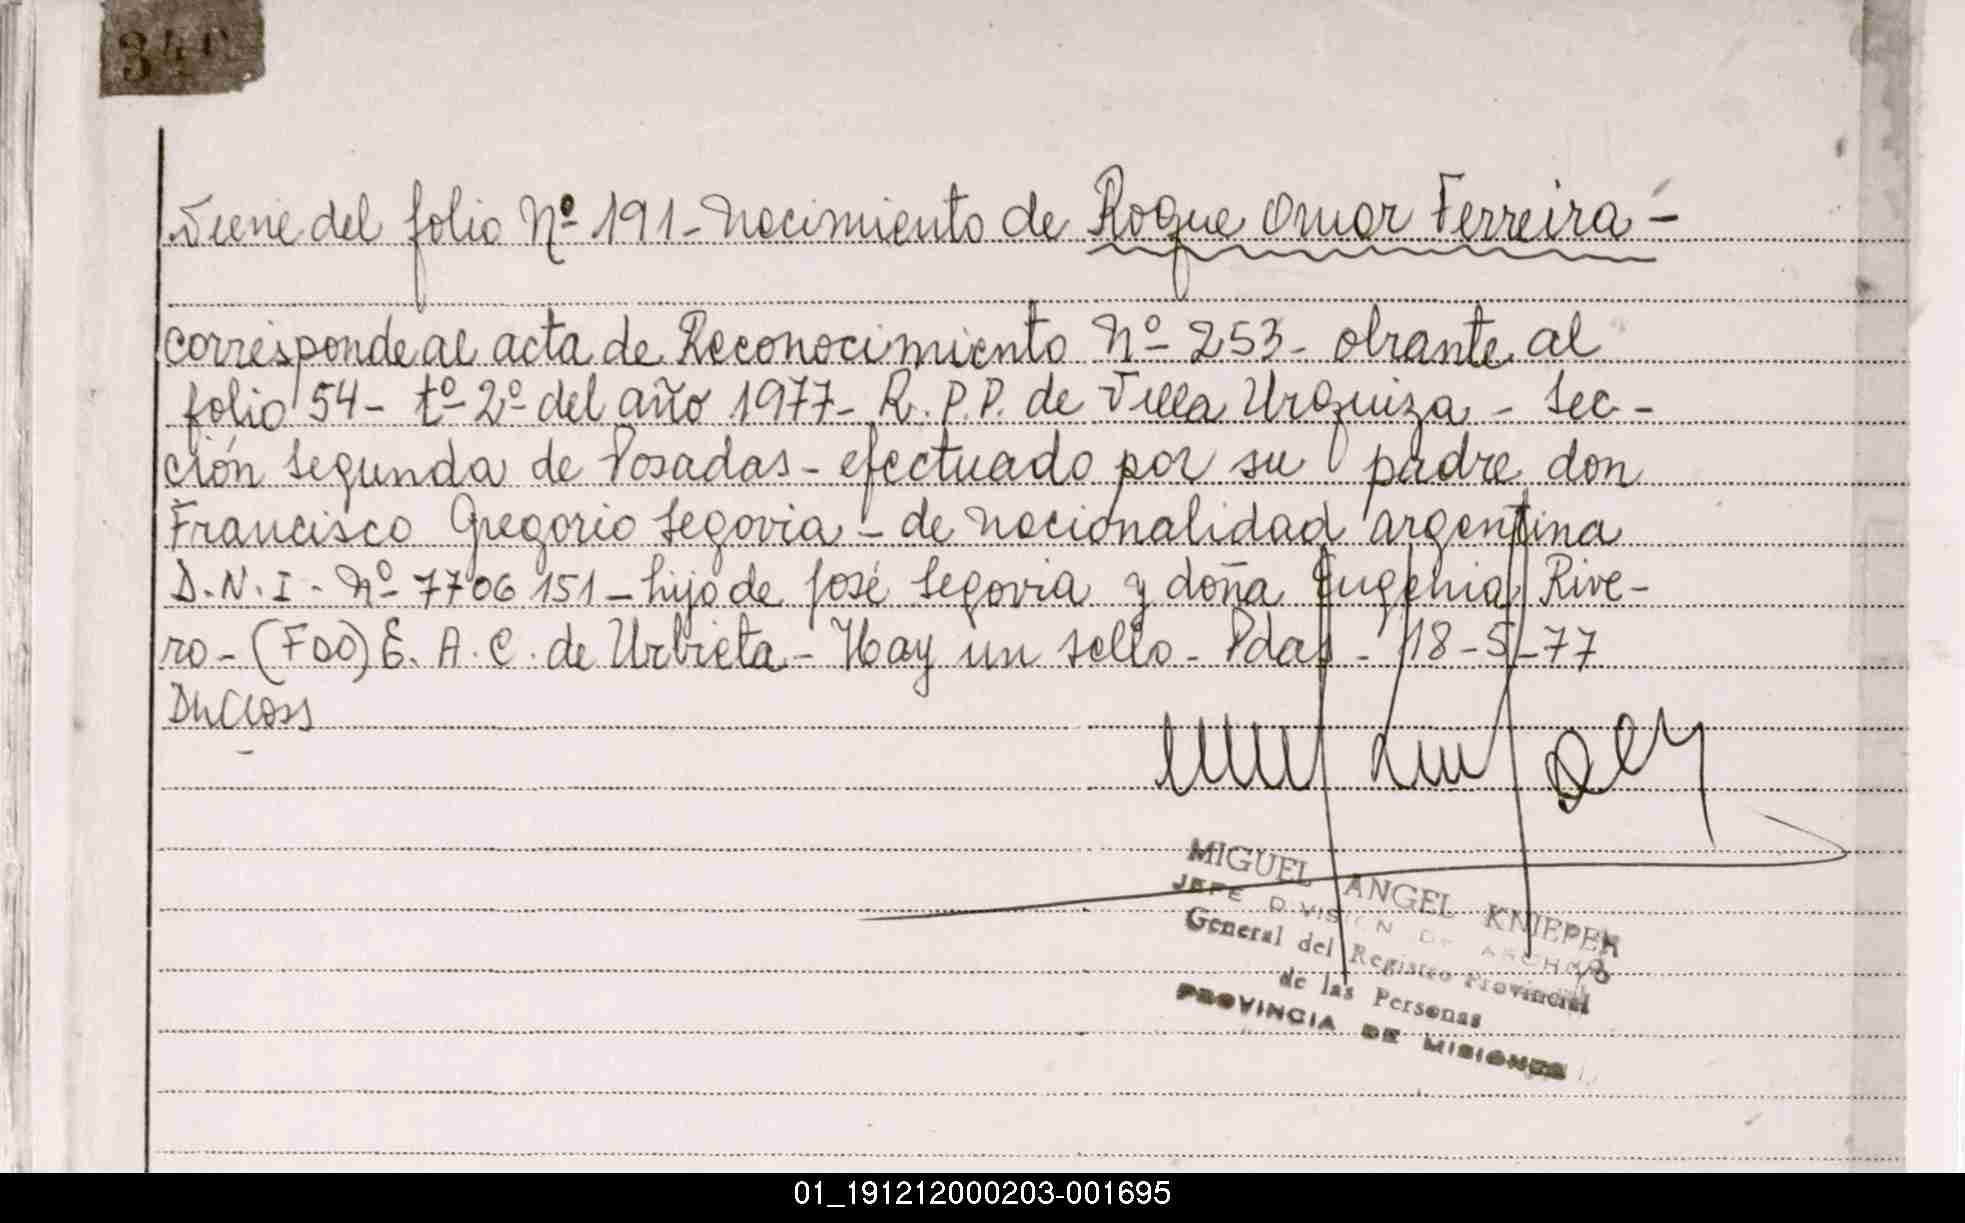 Viene del folio Nº 191 - Nacimiento de Roque Omar Ferreira -
corresponde al acta de Reconocimiento Nº 253 - obrante al
folio 54 - tº 2º del año 1977 - R. P. P. de Villa Urquiza - Sec-
ción Segunda de Posadas - efectuado por su padre don
Francisco Gregorio Segovia - de nacionalidad argentina
D. N. I. Nº 7706151 - hijo de José Segovia y doña Eugenia Rive-
ro - (Fdo) E. A. C. de Urbieta - Hay un sello - Pdas - 18-5-77
MIGUEL ANGEL KNIEPER
JEFE DIVISION DE ARCHIVO
General del Registro Provincial
de las Personas
PROVINCIA DE MISIONES
01_191212000203-001695